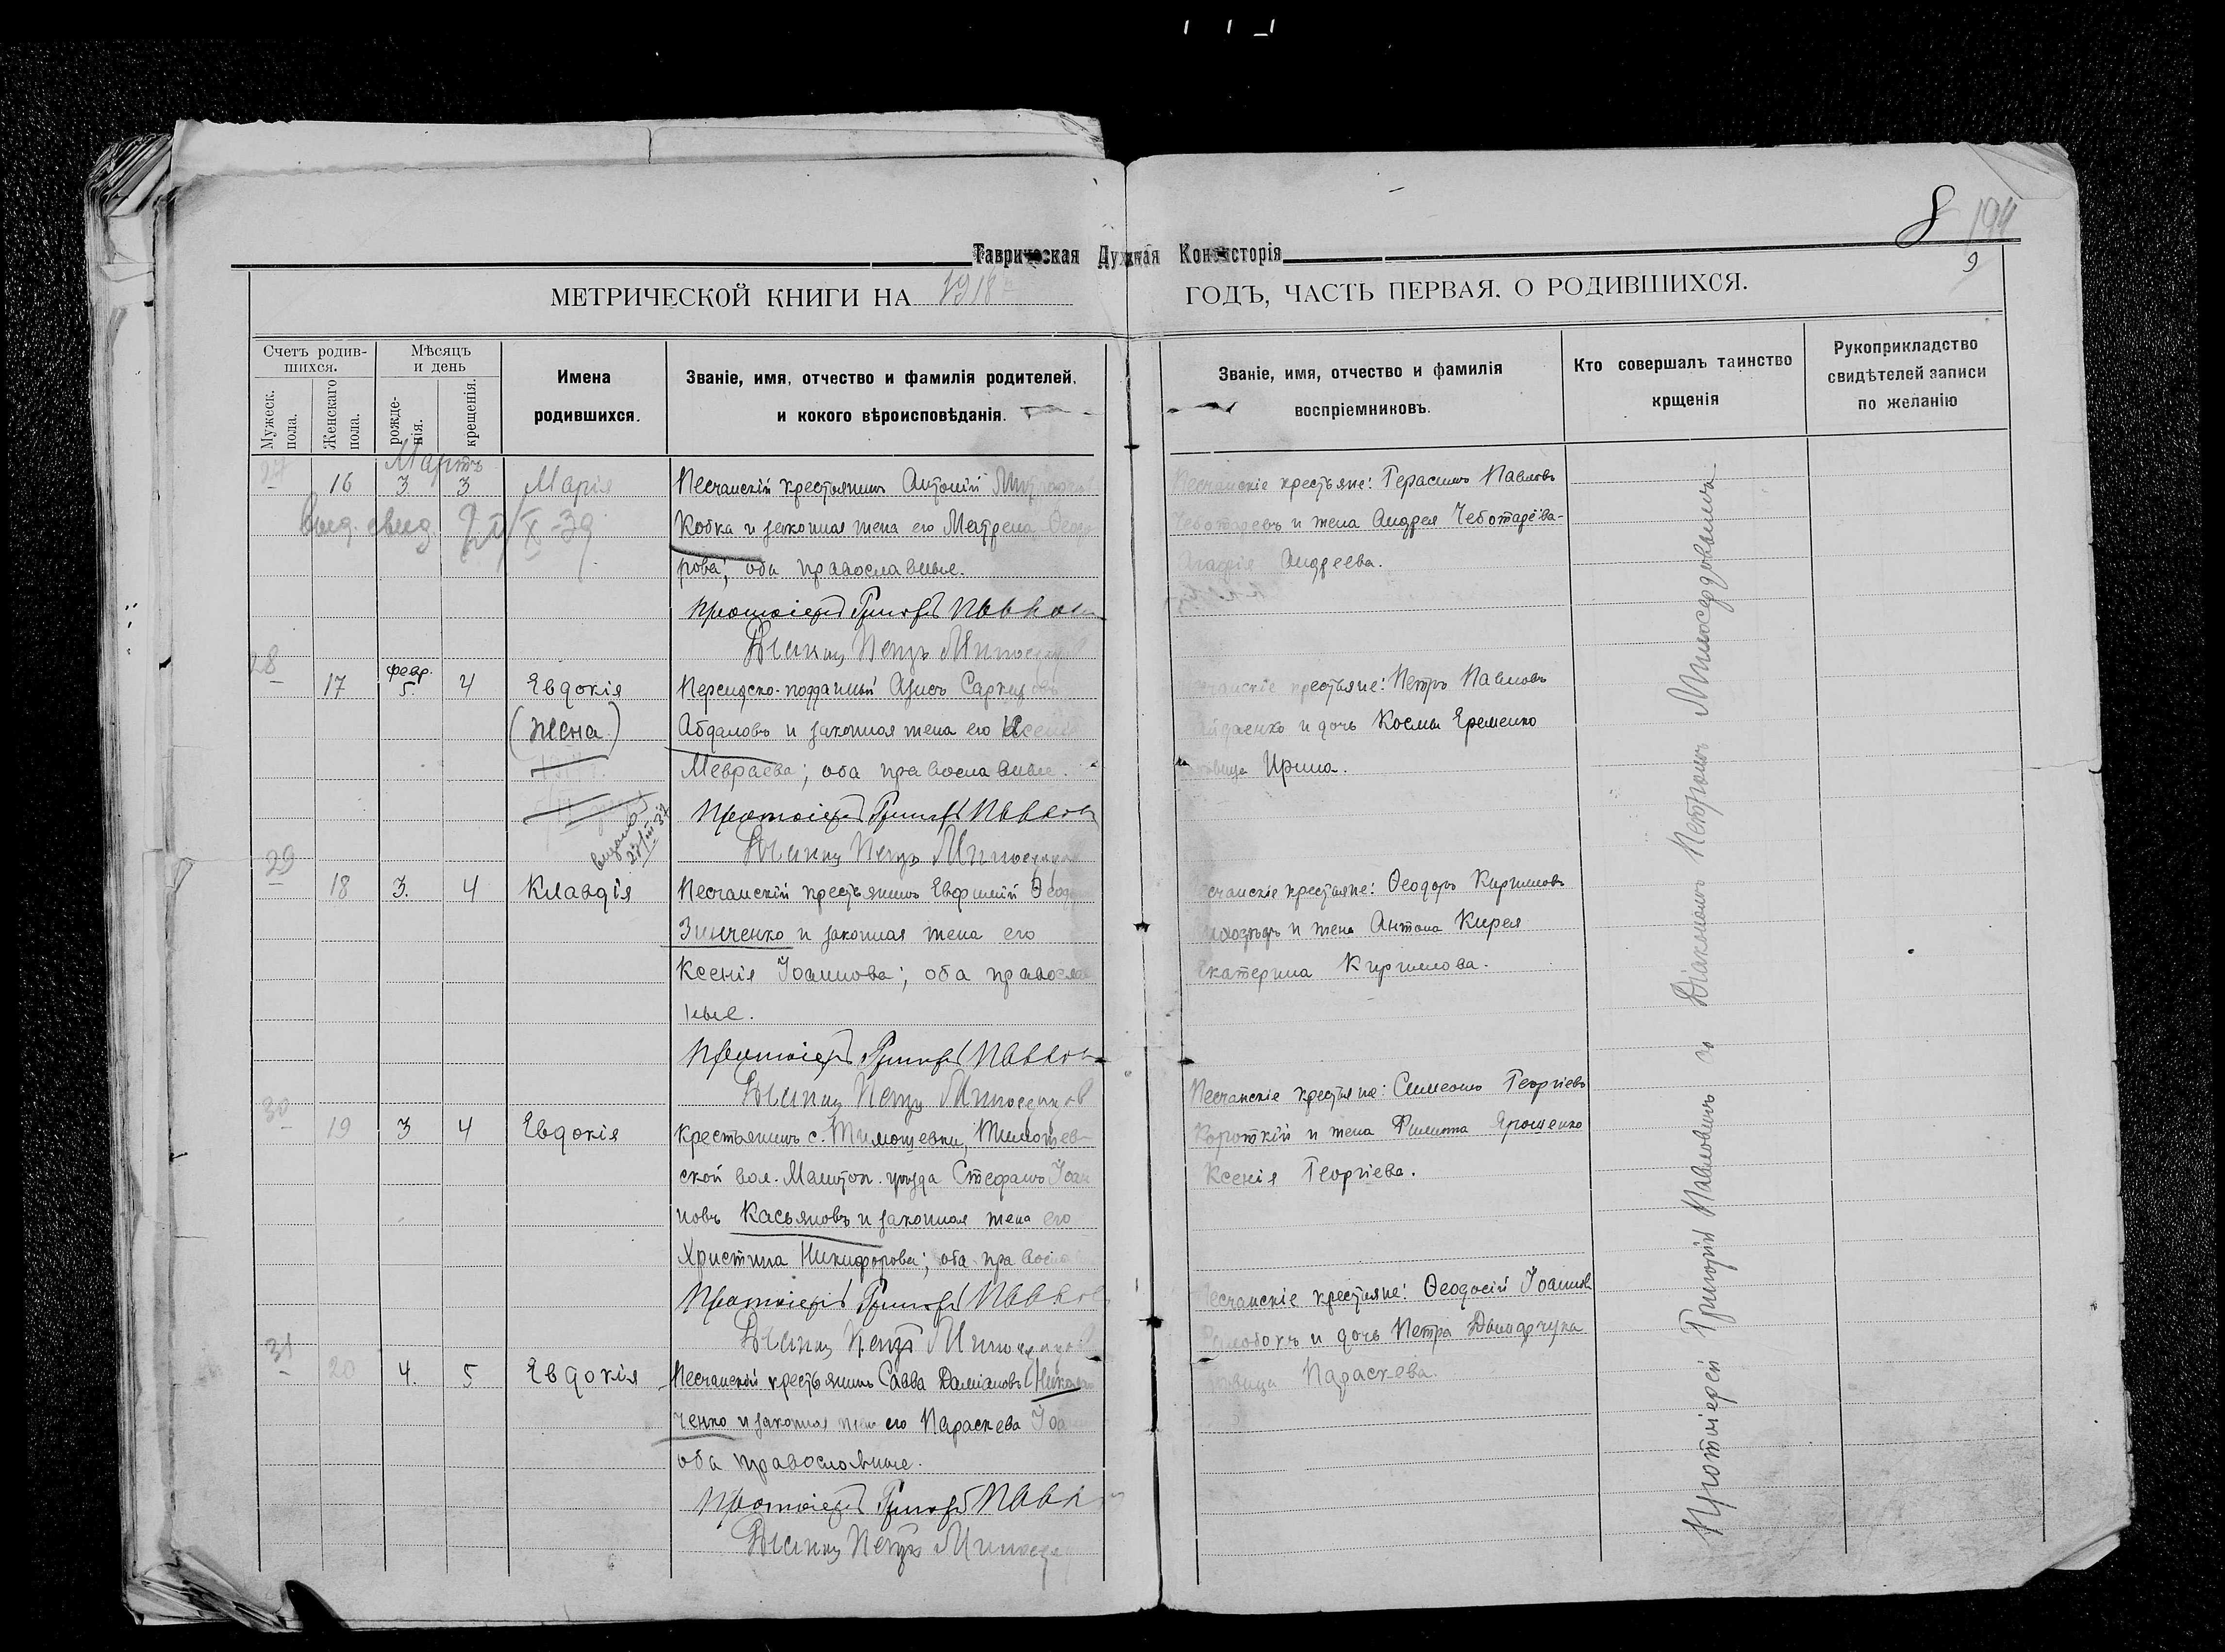 8 194
9
Таврическая Духовная Консисторія
МЕТРИЧЕСКОЙ КНИГИ НА 1918 ГОДЪ, ЧАСТЬ ПЕРВАЯ, О РОДИВШИХСЯ.
Счетъ родив-
шихся.
Мужеск.
пола.
Женскаго
пола.
Мѣсяцъ
и день
рожде-
нія.
крещенія.
Имена
родившихся.
Званіе, имя, отчество и фамилія родителей,
и кокого вѣроисповѣданія.
Званіе, имя, отчество и фамилія
воспріемниковъ.
Кто совершалъ таинство
крщенія
Рукоприкладство
свидѣтелей записи
по желанію
Мартъ
27 16 3 3 Марія
Песчанскій крестьянинъ Антоній
Кобка и законная жена его Матрена Ѳеодо
рова; оба православные.
Протоіерей Григорій Павлов
Діаконъ Петръ Милосердов
Песчанскіе крестьяне: Герасимъ Павловъ
Чеботаревъ и жена Андрея Чеботарёва-
Агафія Андреева.
28 17 февр. 5 4 Евдокія
(жена)
Персидско-подданный Азисъ
Абдаловъ и законная жена его Ксенія
Мевраева; оба православные.
Протоіерей Григорій Павлов
Діаконъ Петръ Милосердов
крестьяне: Петръ Павловъ
и дочь Космы Еременко
Ирина.
29 18 3. 4 Клавдія
Песчанскій крестьянинъ Евфимій Ѳеодо
Зинченко и законная жена его
Ксенія Іоаннова; оба правосла
ные.
Протоіерей Григорій Павлов
Діаконъ Петръ Милосердов
крестьяне: Ѳеодоръ Кирилловъ
и жена Антона Кирея
Екатерина Кириллова.
30 19 3 4 Евдокія
Крестьянинъ с. Тимошевки, Тимошев-
ской вол. Мелитоп. уѣзда Стефанъ Іоан
новъ Касьяновъ и законная жена его
Христина Никифорова; оба правосла
Протоіерей Григорій Павлов
Діаконъ Петръ Милосердов
Песчанскіе крестьяне: Симеонъ Георгіевъ
Короткій и жена Филиппа Ярошенко
Ксенія Георгіева.
31 20 4. 5 Евдокія
Песчанскій крестьянинъ Савва Даміановъ Николай
ченко и законная жена его Параскева Іоа
оба православные.
Протоіерей Григорій Павл
Діаконъ Петръ Милосерд
Песчанскіе крестьяне: Ѳеодосій Іоаннов
и дочь Петра
Параскева.
Протоіерей Григорій Павловичъ съ Діакономъ Петромъ Милосердовымъ